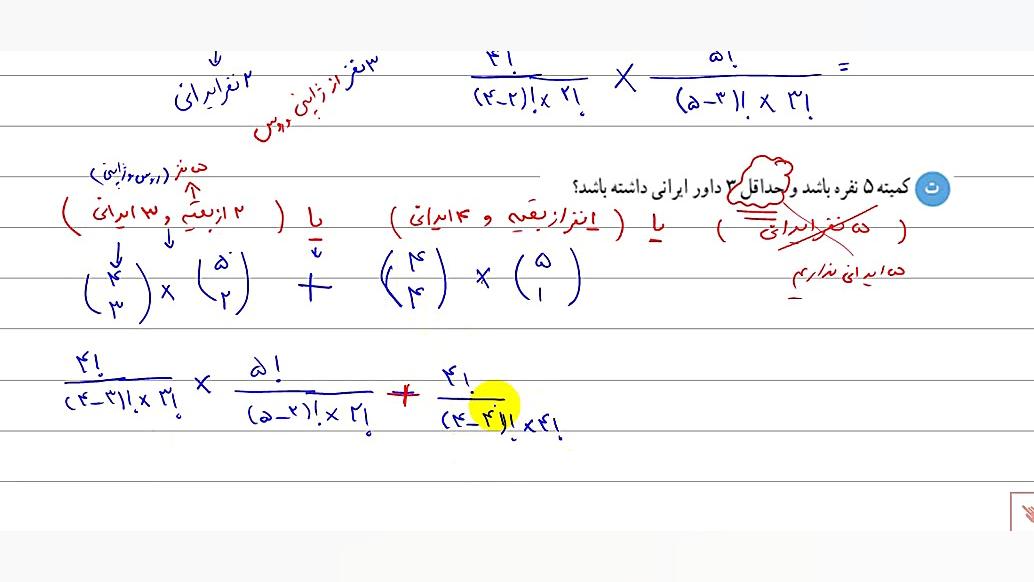 ۴! / (۴-۲)! × ۲! × ۵! / (۵-۳)! × ۳! =
↓
۲ نفر ایرانی
۳ نفر از ژاپنی و روس
ت کمیته ۵ نفره باشد و حداقل ۳ داور ایرانی داشته باشد؟
۵ نفر (روس و ژاپنی)
(۲ از بقیه و ۳ ایرانی) یا (۱ نفر از بقیه و ۴ ایرانی) یا (۵ نفر ایرانی)
۵ ایرانی نداریم
(۴ ۳) × (۵ ۲) + (۴ ۴) × (۵ ۱)
۴! / (۴-۳)! × ۳! × ۵! / (۵-۲)! × ۲! + ۴! / (۴-۴)! × ۴!